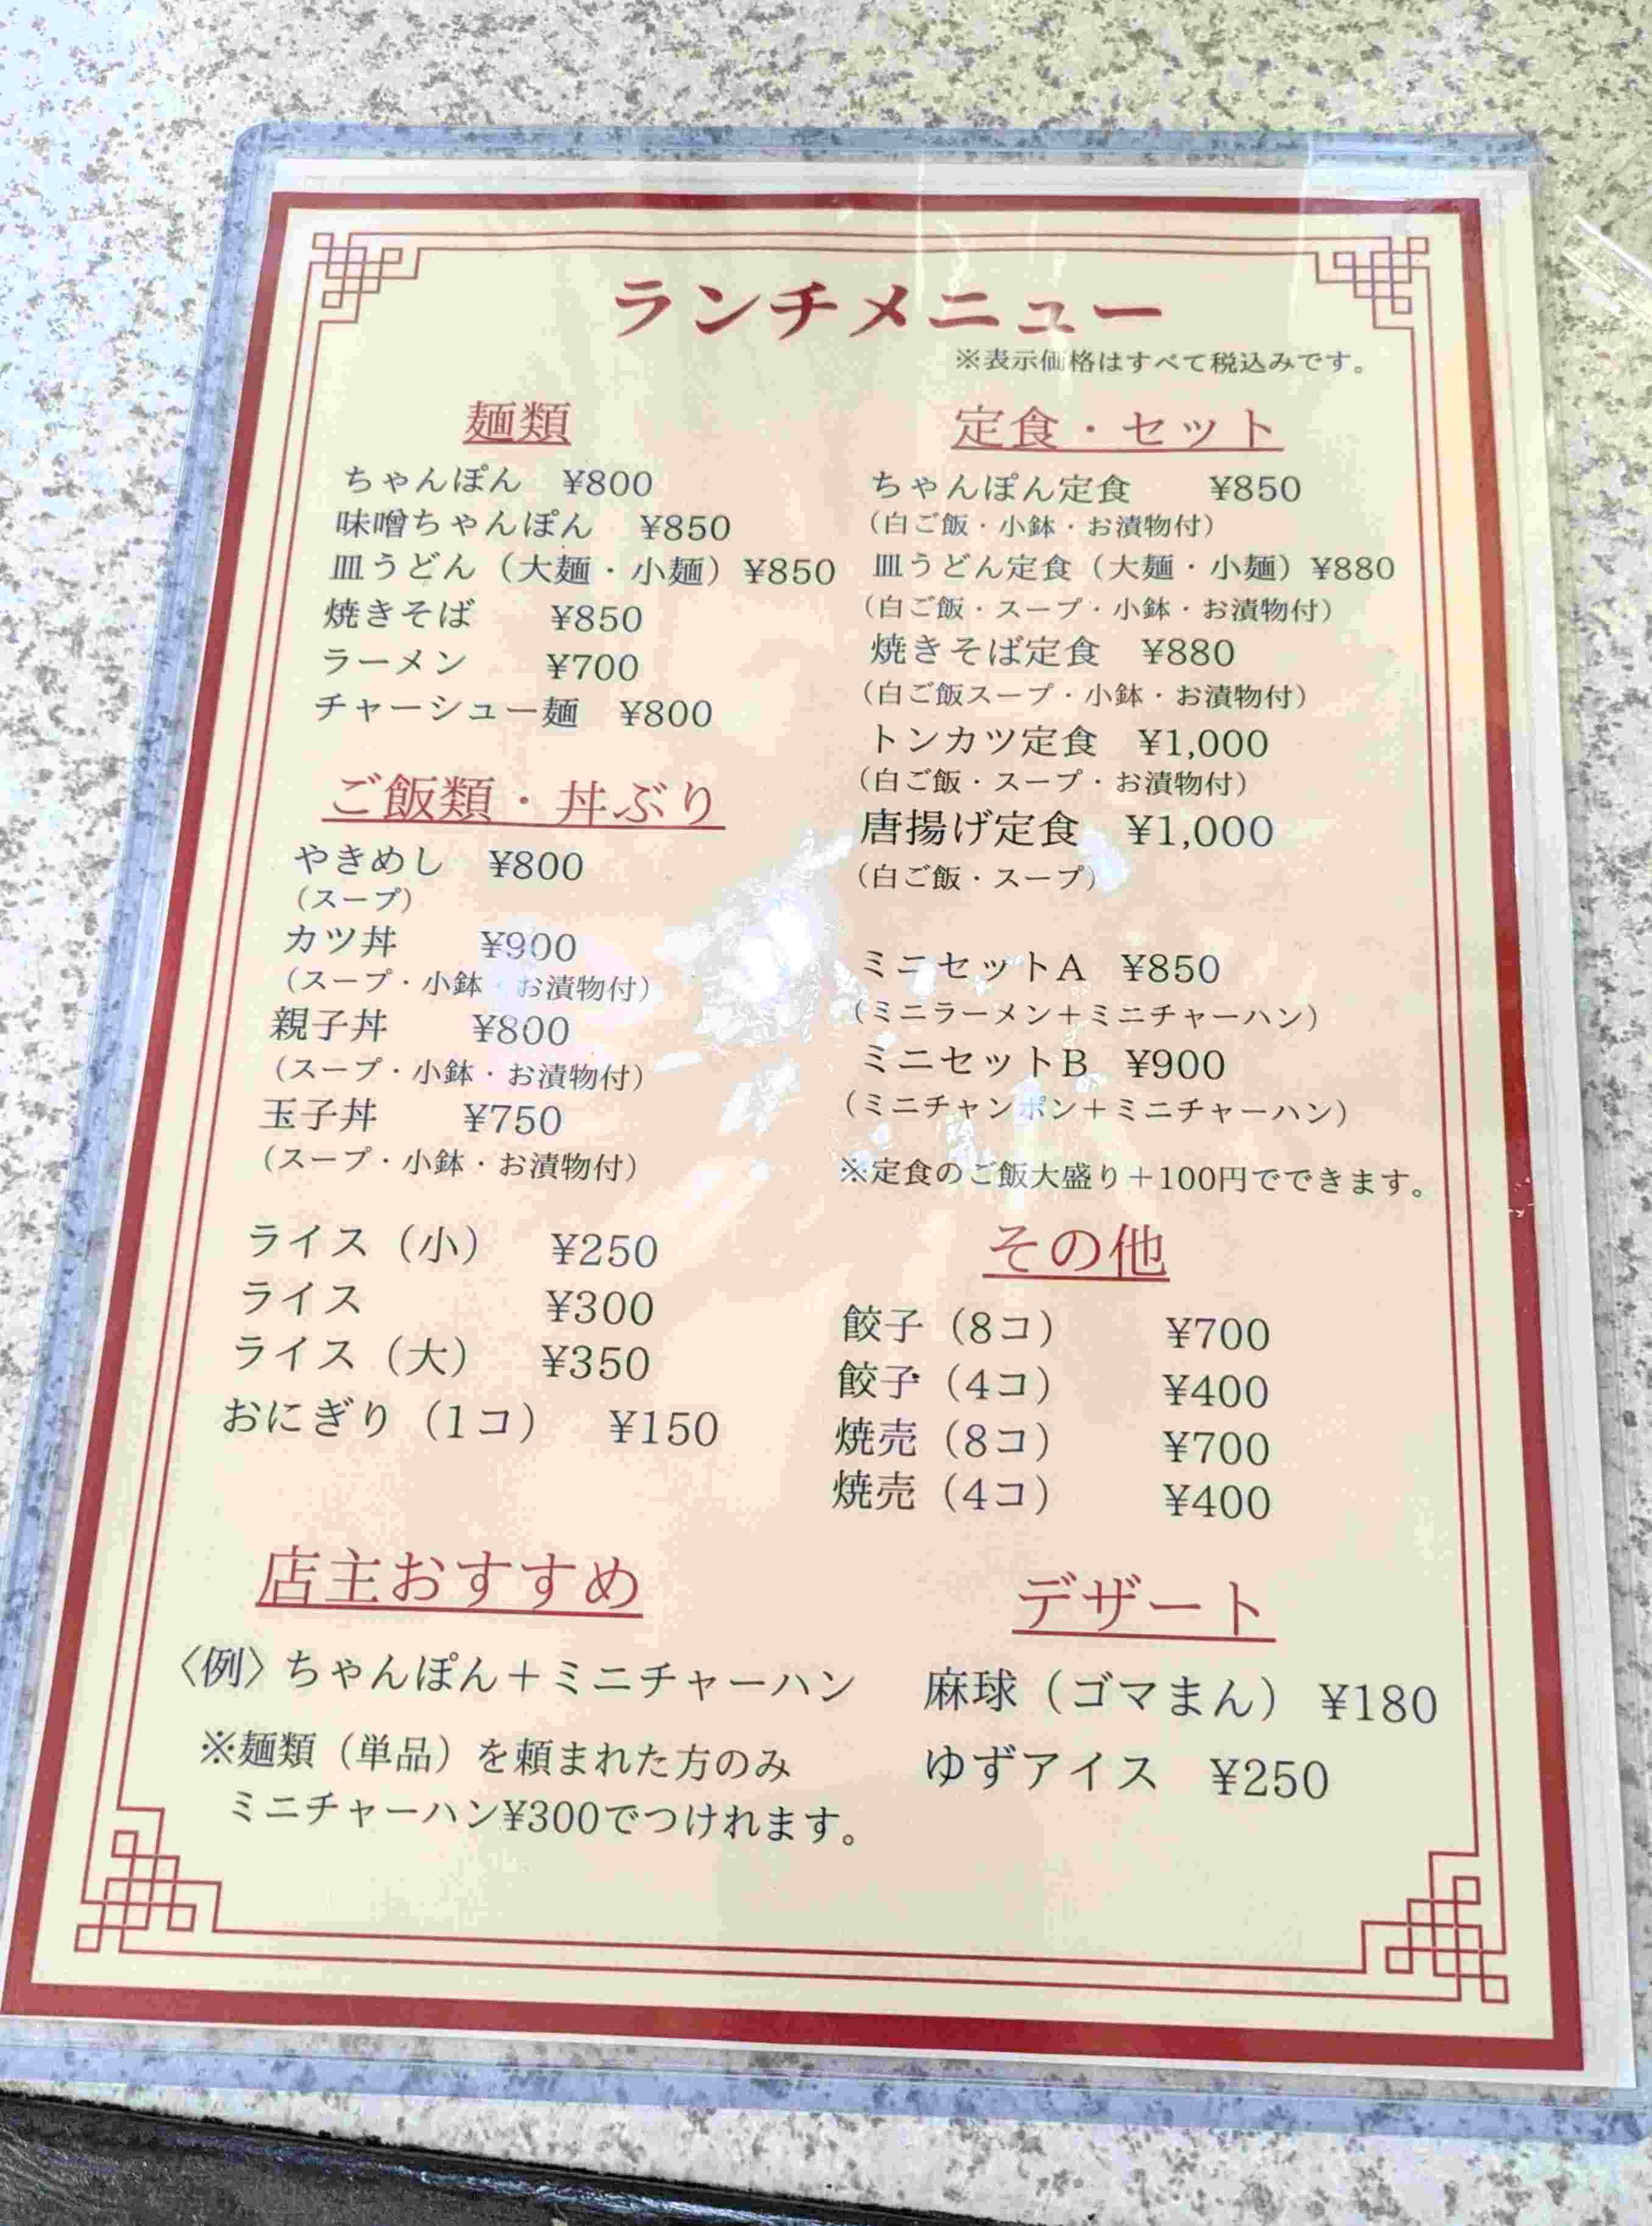 ランチメニュー
※表示価格はすべて税込みです。
麺類
ちゃんぽん ¥800
味噌ちゃんぽん ¥850
皿うどん（大麺・小麺）¥850
焼きそば ¥850
ラーメン ¥700
チャーシュー麺 ¥800
ご飯類・丼ぶり
やきめし ¥800
（スープ）
カツ丼 ¥900
（スープ・小鉢・お漬物付）
親子丼 ¥800
（スープ・小鉢・お漬物付）
玉子丼 ¥750
（スープ・小鉢・お漬物付）
ライス（小） ¥250
ライス ¥300
ライス（大） ¥350
おにぎり（1コ） ¥150
店主おすすめ
〈例〉ちゃんぽん＋ミニチャーハン
※麺類（単品）を頼まれた方のみ
ミニチャーハン¥300でつけれます。
定食・セット
ちゃんぽん定食 ¥850
（白ご飯・小鉢・お漬物付）
皿うどん定食（大麺・小麺）¥880
（白ご飯・スープ・小鉢・お漬物付）
焼きそば定食 ¥880
（白ご飯スープ・小鉢・お漬物付）
トンカツ定食 ¥1,000
（白ご飯・スープ・お漬物付）
唐揚げ定食 ¥1,000
（白ご飯・スープ）
ミニセットA ¥850
（ミニラーメン＋ミニチャーハン）
ミニセットB ¥900
（ミニチャンポン＋ミニチャーハン）
※定食のご飯大盛り＋100円でできます。
その他
餃子（8コ） ¥700
餃子（4コ） ¥400
焼売（8コ） ¥700
焼売（4コ） ¥400
デザート
麻球（ゴマまん） ¥180
ゆずアイス ¥250